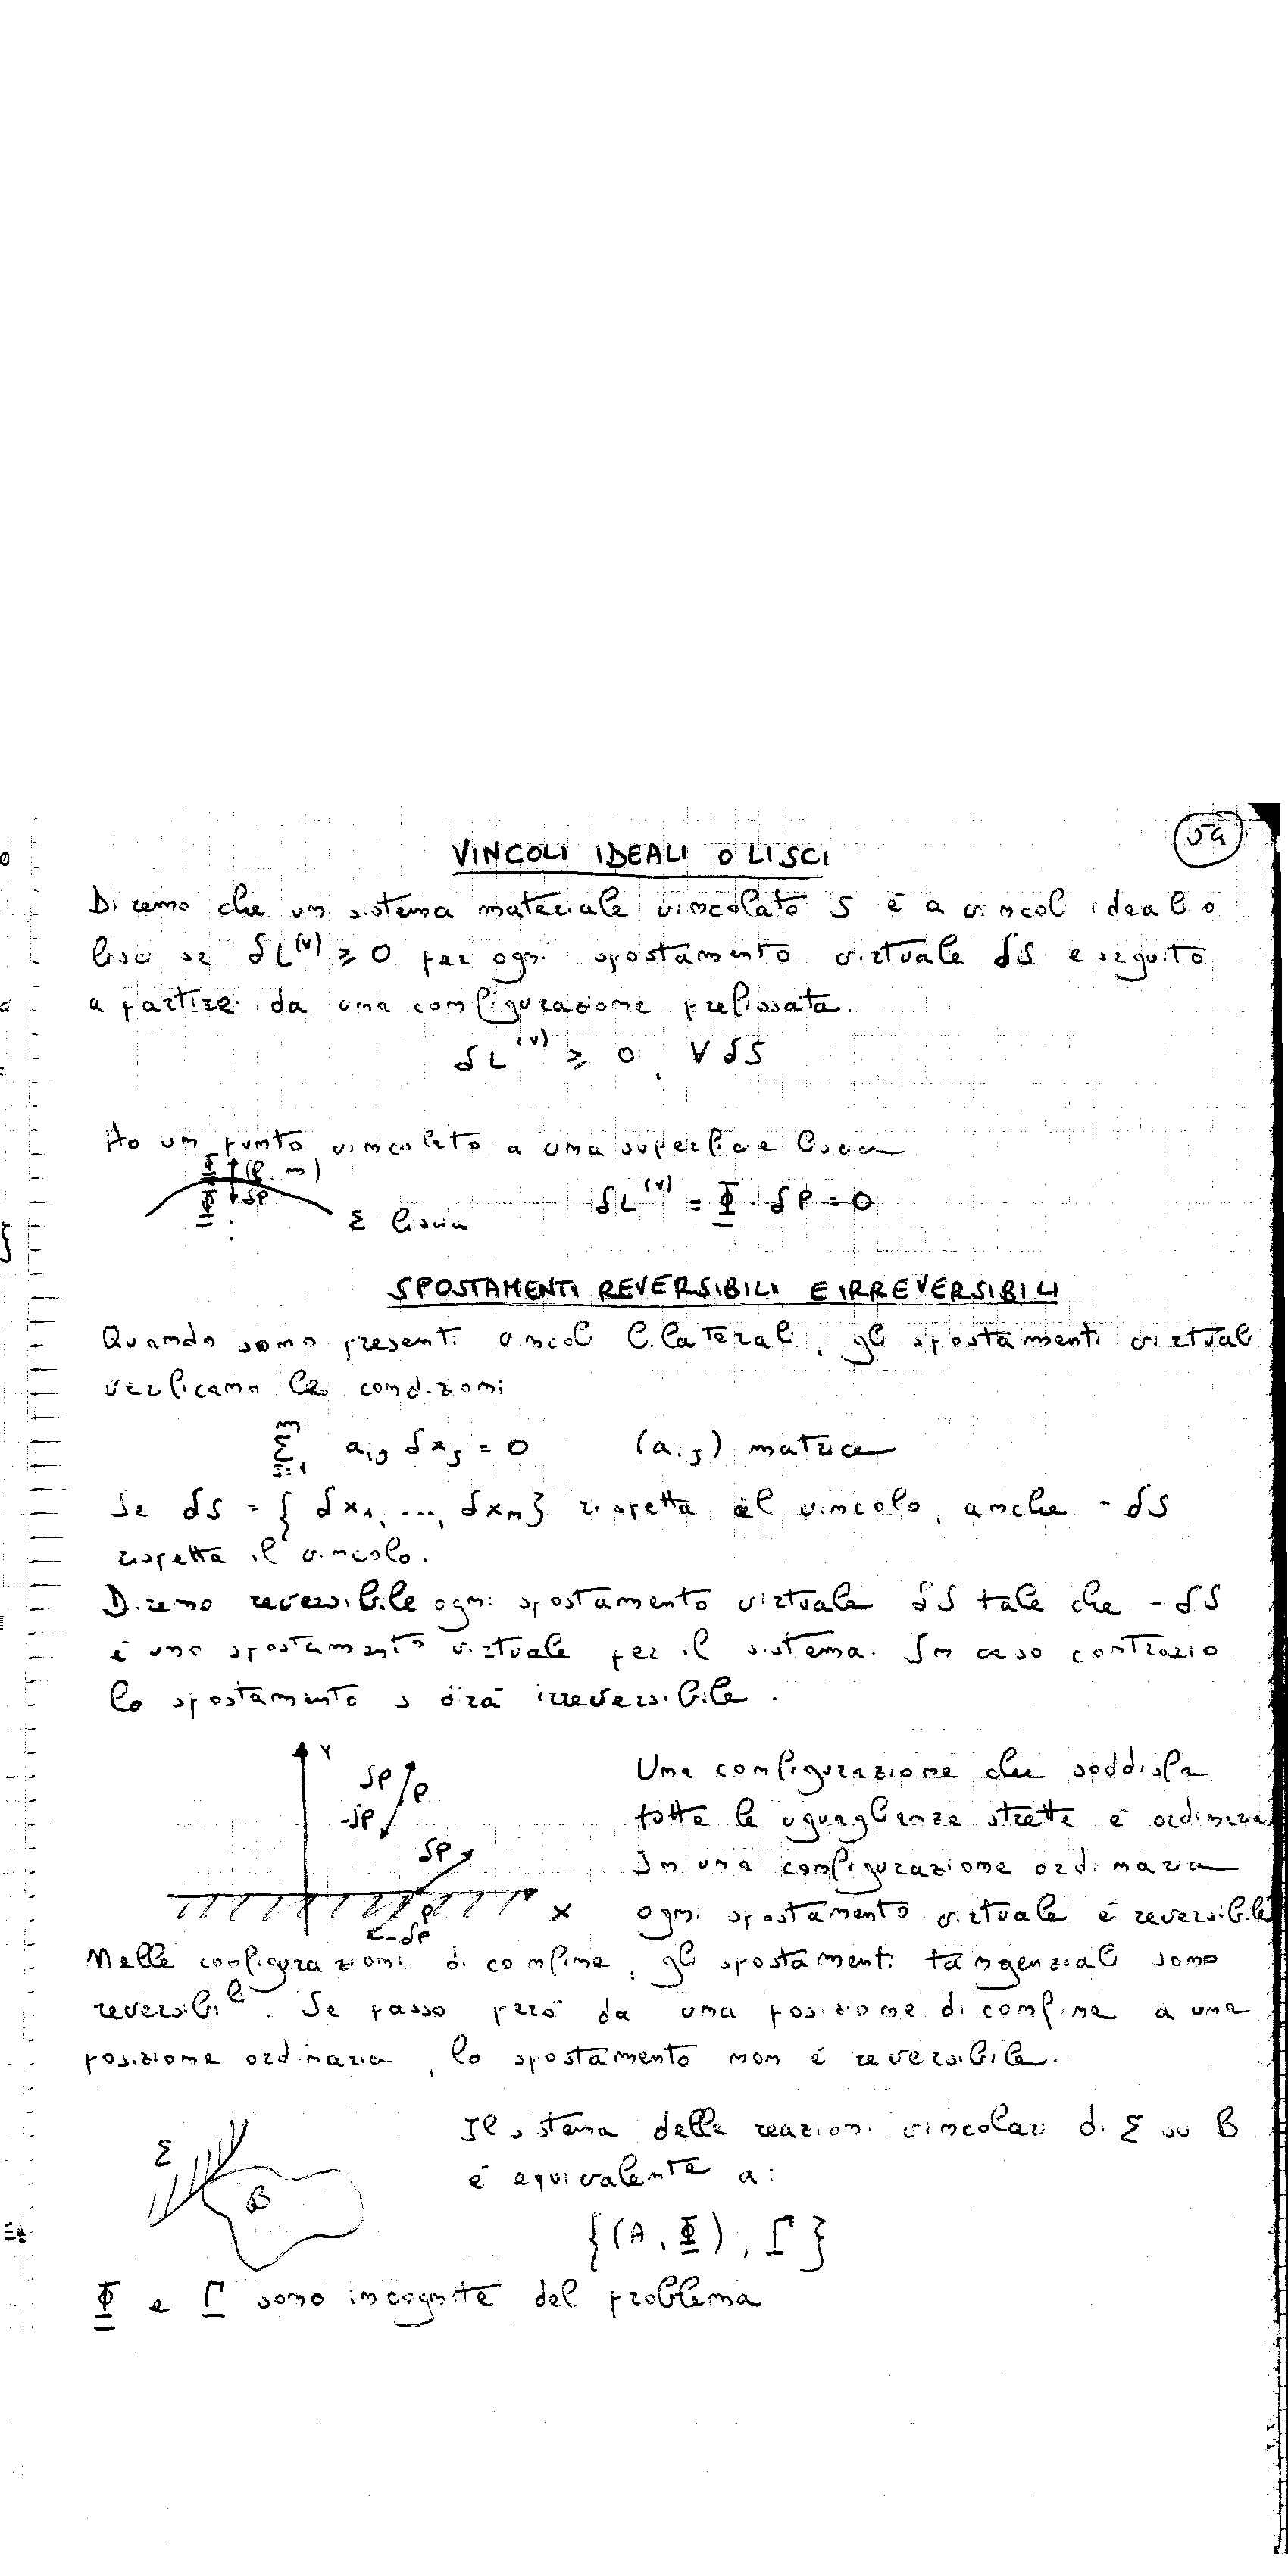 54
VINCOLI IDEALI O LISCI
Diremo che un sistema materiale vincolato S è a vincoli ideali o
lisci se δL⁽ᵛ⁾ ≥ 0 per ogni spostamento virtuale δS eseguito
a partire da una configurazione prefissata.
δL⁽ᵛ⁾ ≥ 0, ∀ δS
Ho un punto vincolato a una superficie liscia
Φ (P, n)
Φ δP
Σ liscia
δL⁽ᵛ⁾ = Φ · δP = 0
SPOSTAMENTI REVERSIBILI E IRREVERSIBILI
Quando sono presenti vincoli bilaterali, gli spostamenti virtuali
verificano le condizioni
Σ_{j=1}^{n} a_{ij} δx_j = 0 (a_{ij}) matrice
Se δS = { δx₁, ..., δxₙ} rispetta il vincolo, anche - δS
rispetta il vincolo.
Diremo reversibile ogni spostamento virtuale δS tale che - δS
è uno spostamento virtuale per il sistema. In caso contrario
lo spostamento si dirà irreversibile.
Y
δP P
-δP
δP
P
-δP
X
Una configurazione che soddisfa
tutte le uguaglianze strette è ordinaria
In una configurazione ordinaria
ogni spostamento virtuale è reversibile
Nelle configurazioni di confine, gli spostamenti tangenziali sono
reversibili. Se passo però da una posizione di confine a una
posizione ordinaria, lo spostamento non è reversibile.
Σ
B
Il sistema delle reazioni vincolari di Σ su B
è equivalente a:
{(A, Φ), Γ}
Φ e Γ sono incognite del problema